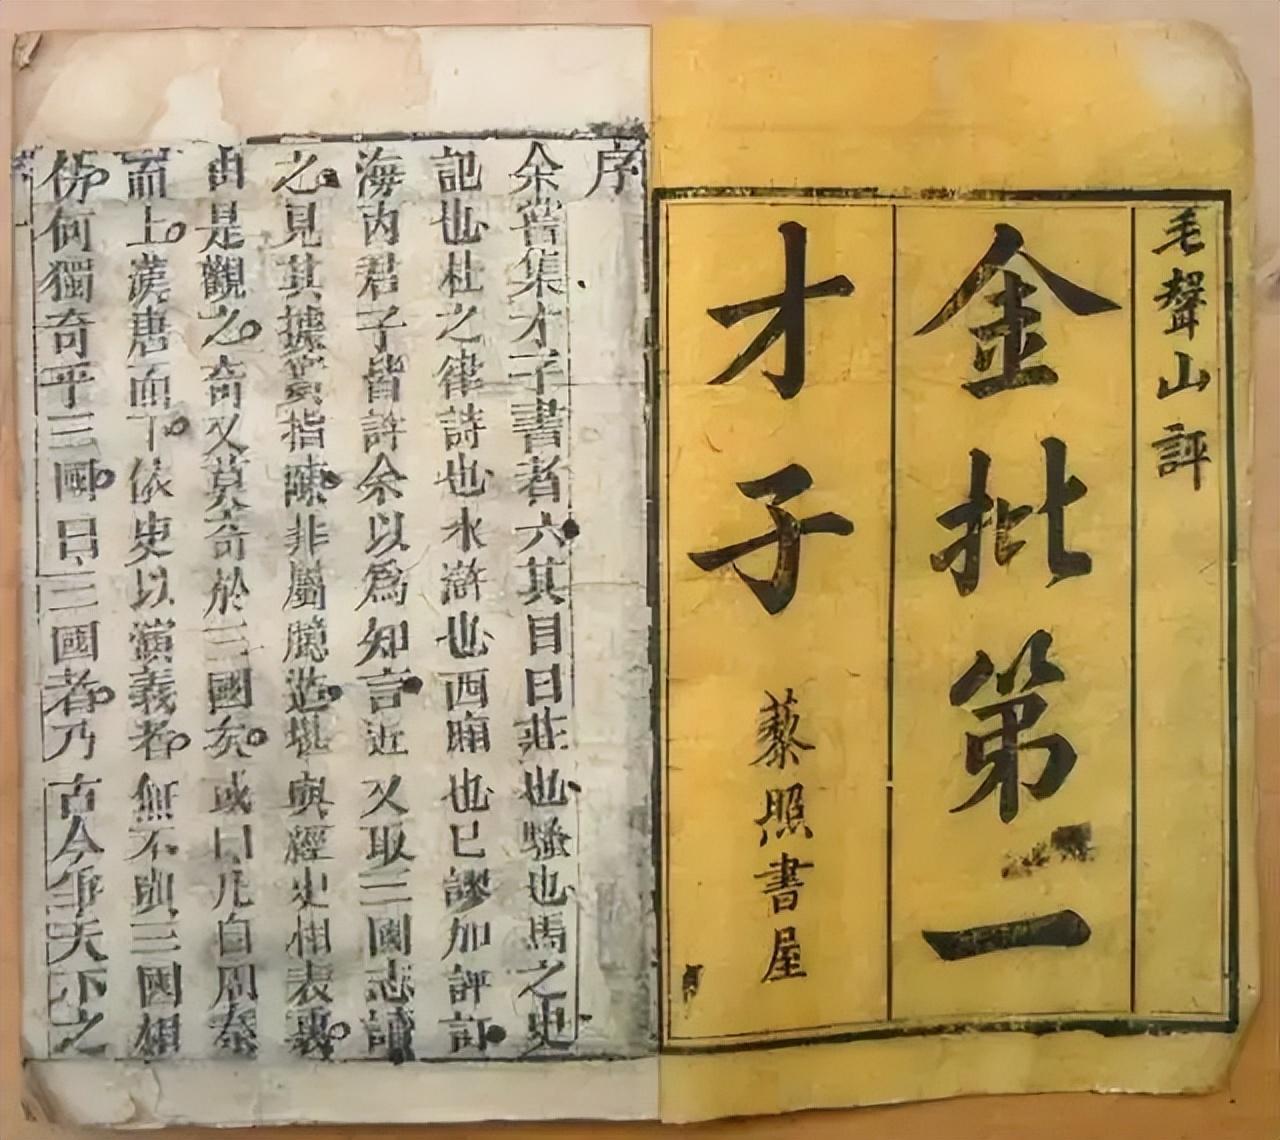 毛聲山評
金批第一
才子
藜照書屋
序
余嘗集才子書者六其目曰莊也騷也馬之史
記也杜之律詩也水滸也西廂也已謬加評訂
海內君子皆許余以為知言近又取三國志讀
之見其據實指陳非屬臆造堪與經史相表裏
由是觀之奇又莫奇於三國矣或曰凡自周秦
而上漢唐而下依史以演義者無不與三國相
仿何獨奇乎三國曰三國者乃古今爭天下之